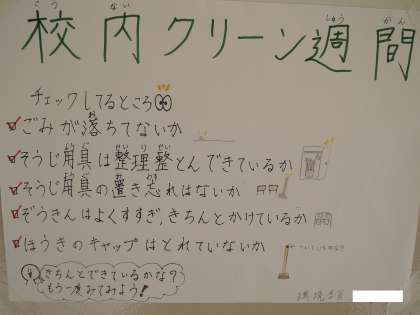 校内クリーン週間
チェックしてるところ
ごみが落ちてないか
そうじ用具は整理整とんできているか
そうじ用具の置き忘れはないか
ぞうきんはよくすすぎ,きちんとかけているか
ほうきのキャップはとれていないか
きちんとできているかな?
もう一度みてみよう!
環境委員